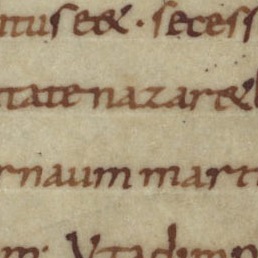 tus e& · secess
tate nazar&
rnaum mari
m; Vtadimp